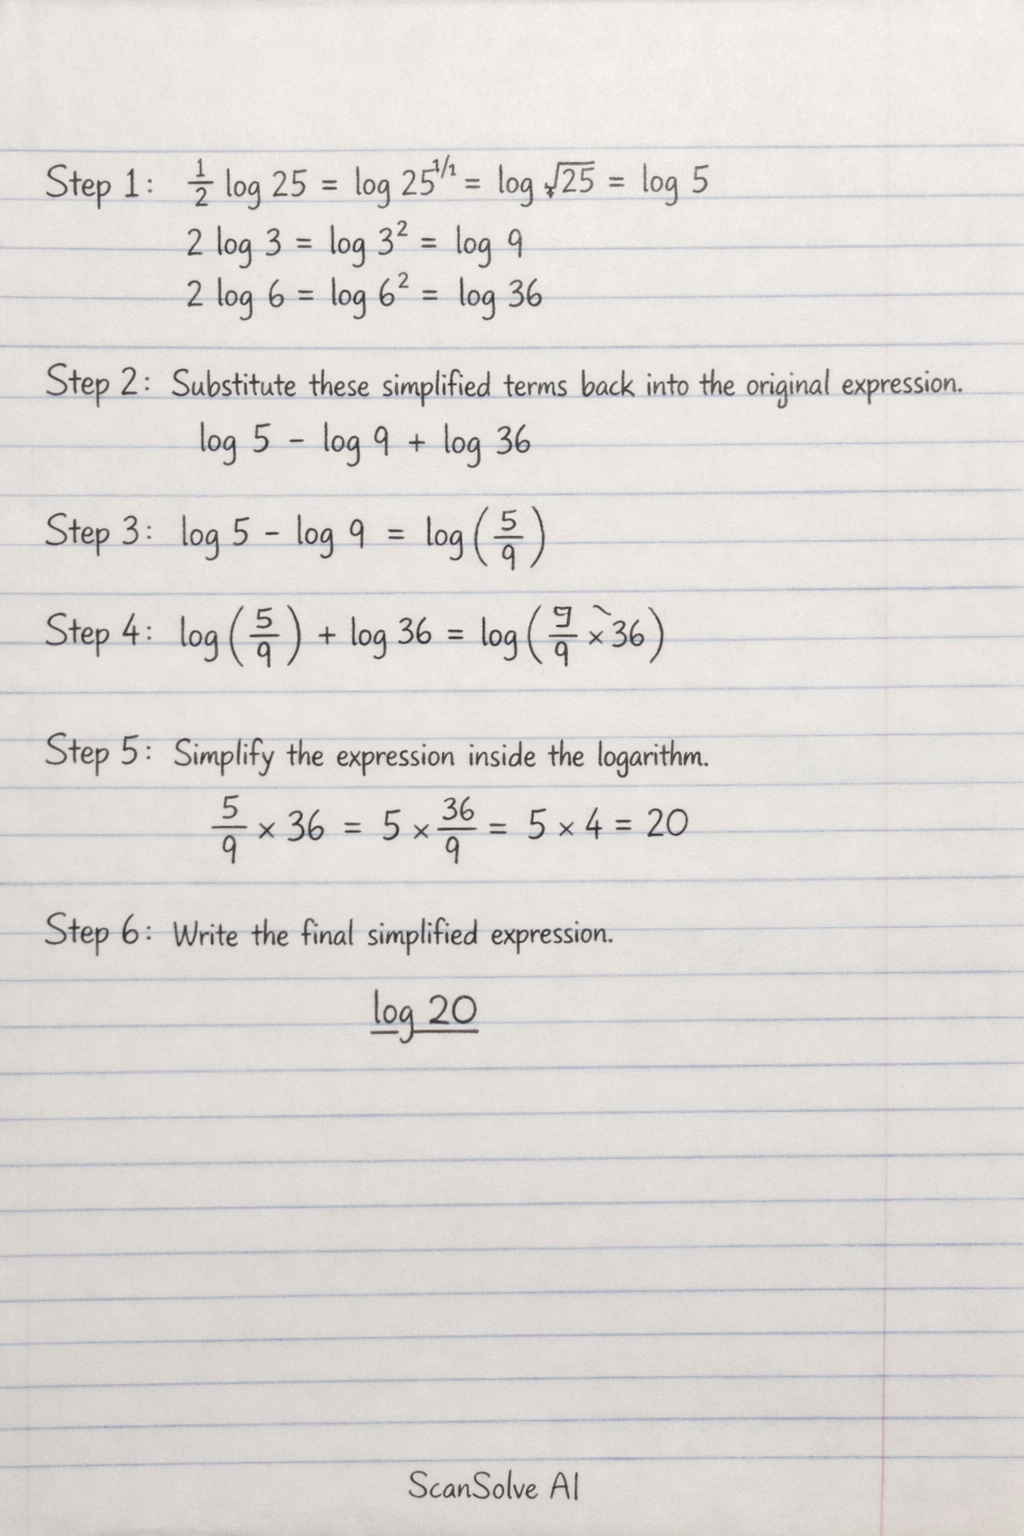 Step 1: 1/2 log 25 = log 25^1/1 = log √25 = log 5
2 log 3 = log 3² = log 9
2 log 6 = log 6² = log 36
Step 2: Substitute these simplified terms back into the original expression.
log 5 − log 9 + log 36
Step 3: log 5 − log 9 = log(5/9)
Step 4: log(5/9) + log 36 = log(9/9 × 36)
Step 5: Simplify the expression inside the logarithm.
5/9 × 36 = 5 × 36/9 = 5 × 4 = 20
Step 6: Write the final simplified expression.
log 20
ScanSolve AI